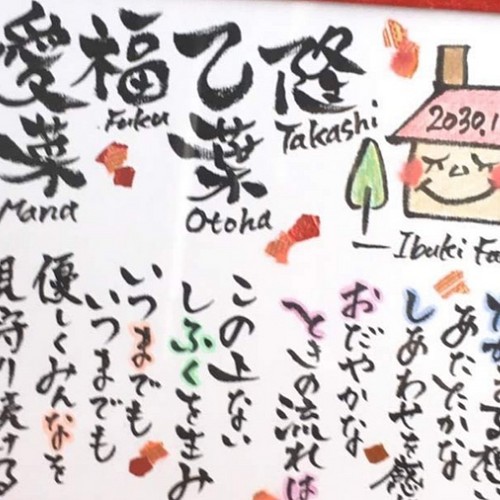 2030.1
Ibuki Fa
隆
Takashi
乙葉
Otoha
福
Fuku
愛菜
Mana
あたたかな
しあわせを感
おだやかな
ときの流れは
この上ない
しふくを生み
いつまでも
いつまでも
優しくみんなを
見守り続ける